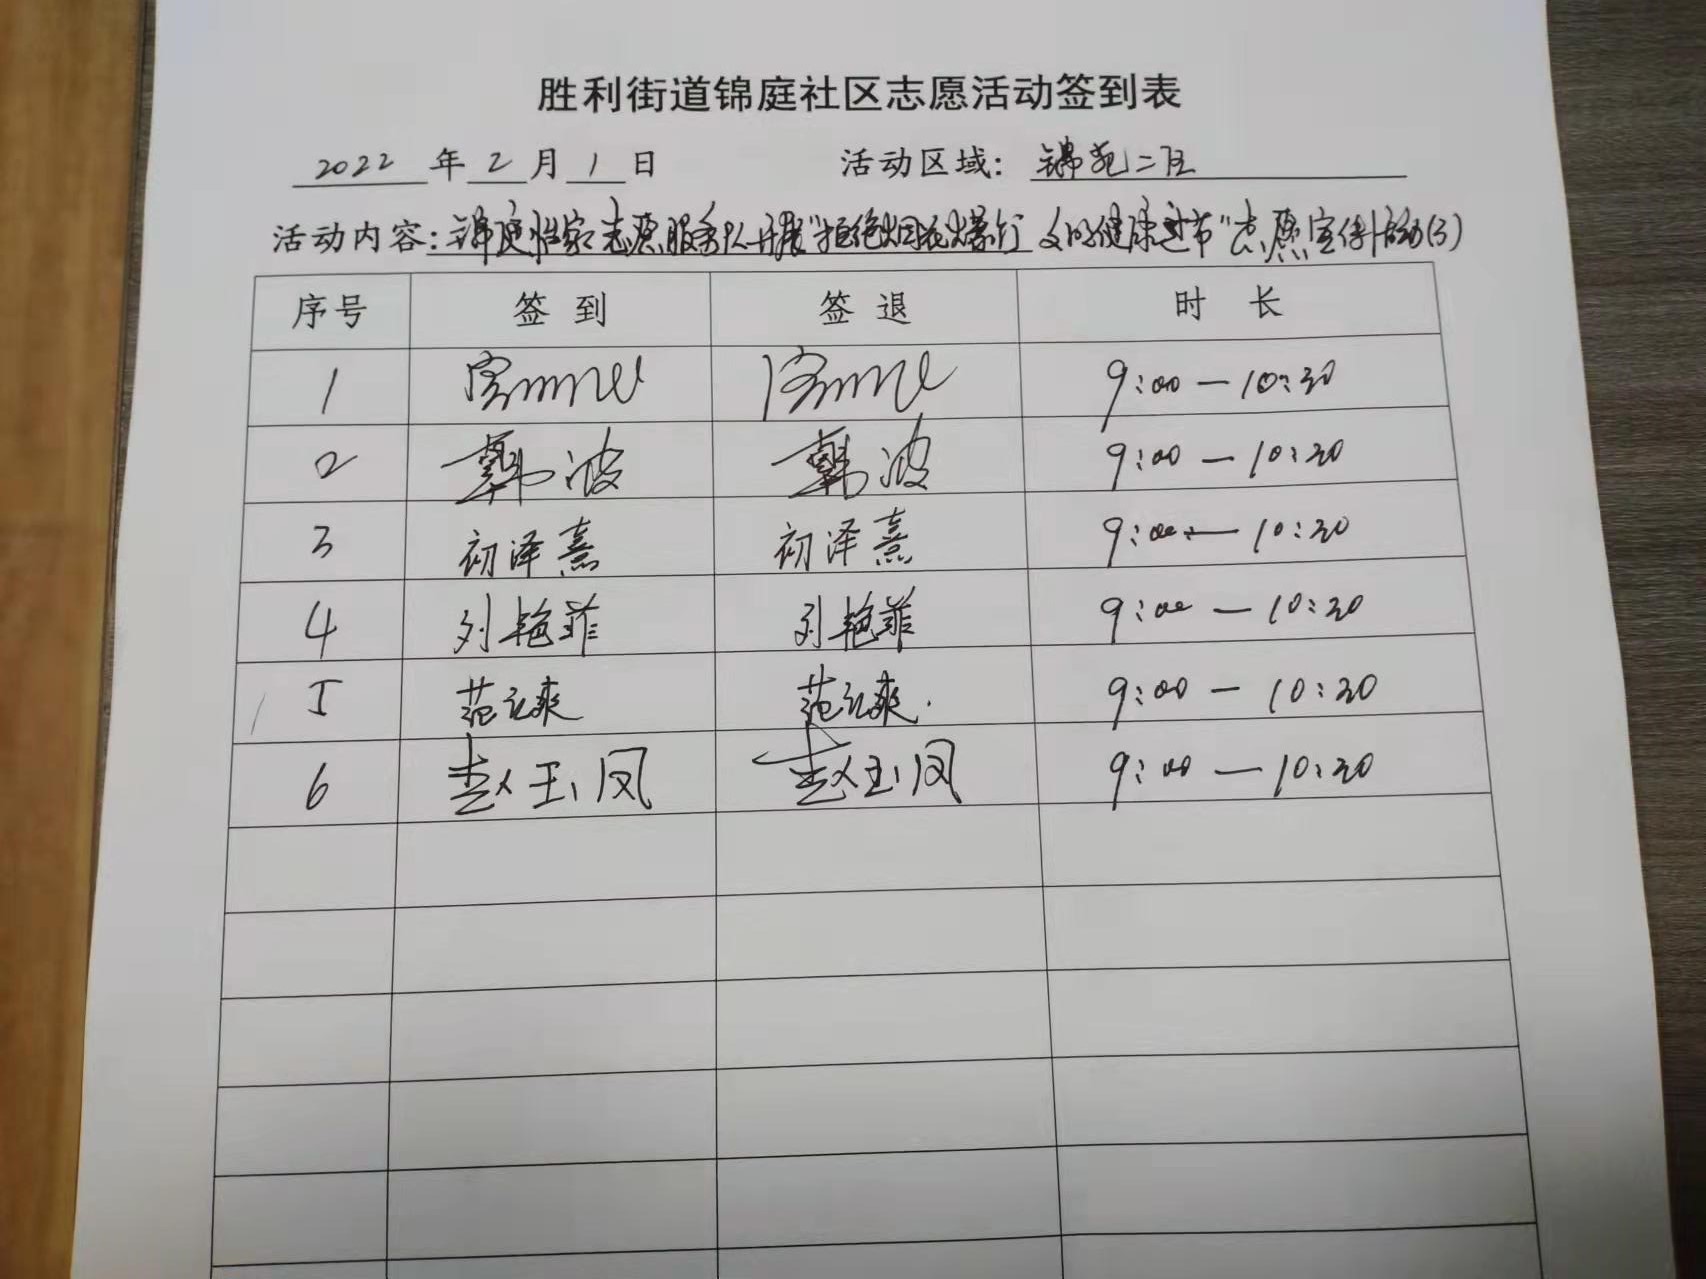 胜利街道锦庭社区志愿活动签到表
2022 年 2 月 1 日 活动区域: 锦苑二区
活动内容: 锦庭 志愿服务队开展"拒绝烟花爆竹 文明健康过节"志愿宣传活动(3)
序号 签到 签退 时 长
1 9:00 — 10:30
2 韩波 韩波 9:00 — 10:30
3 初泽熹 初泽熹 9:00 — 10:30
4 刘艳菲 刘艳菲 9:00 — 10:30
5 范 爽 范 爽 9:00 — 10:30
6 赵玉凤 赵玉凤 9:00 — 10:30